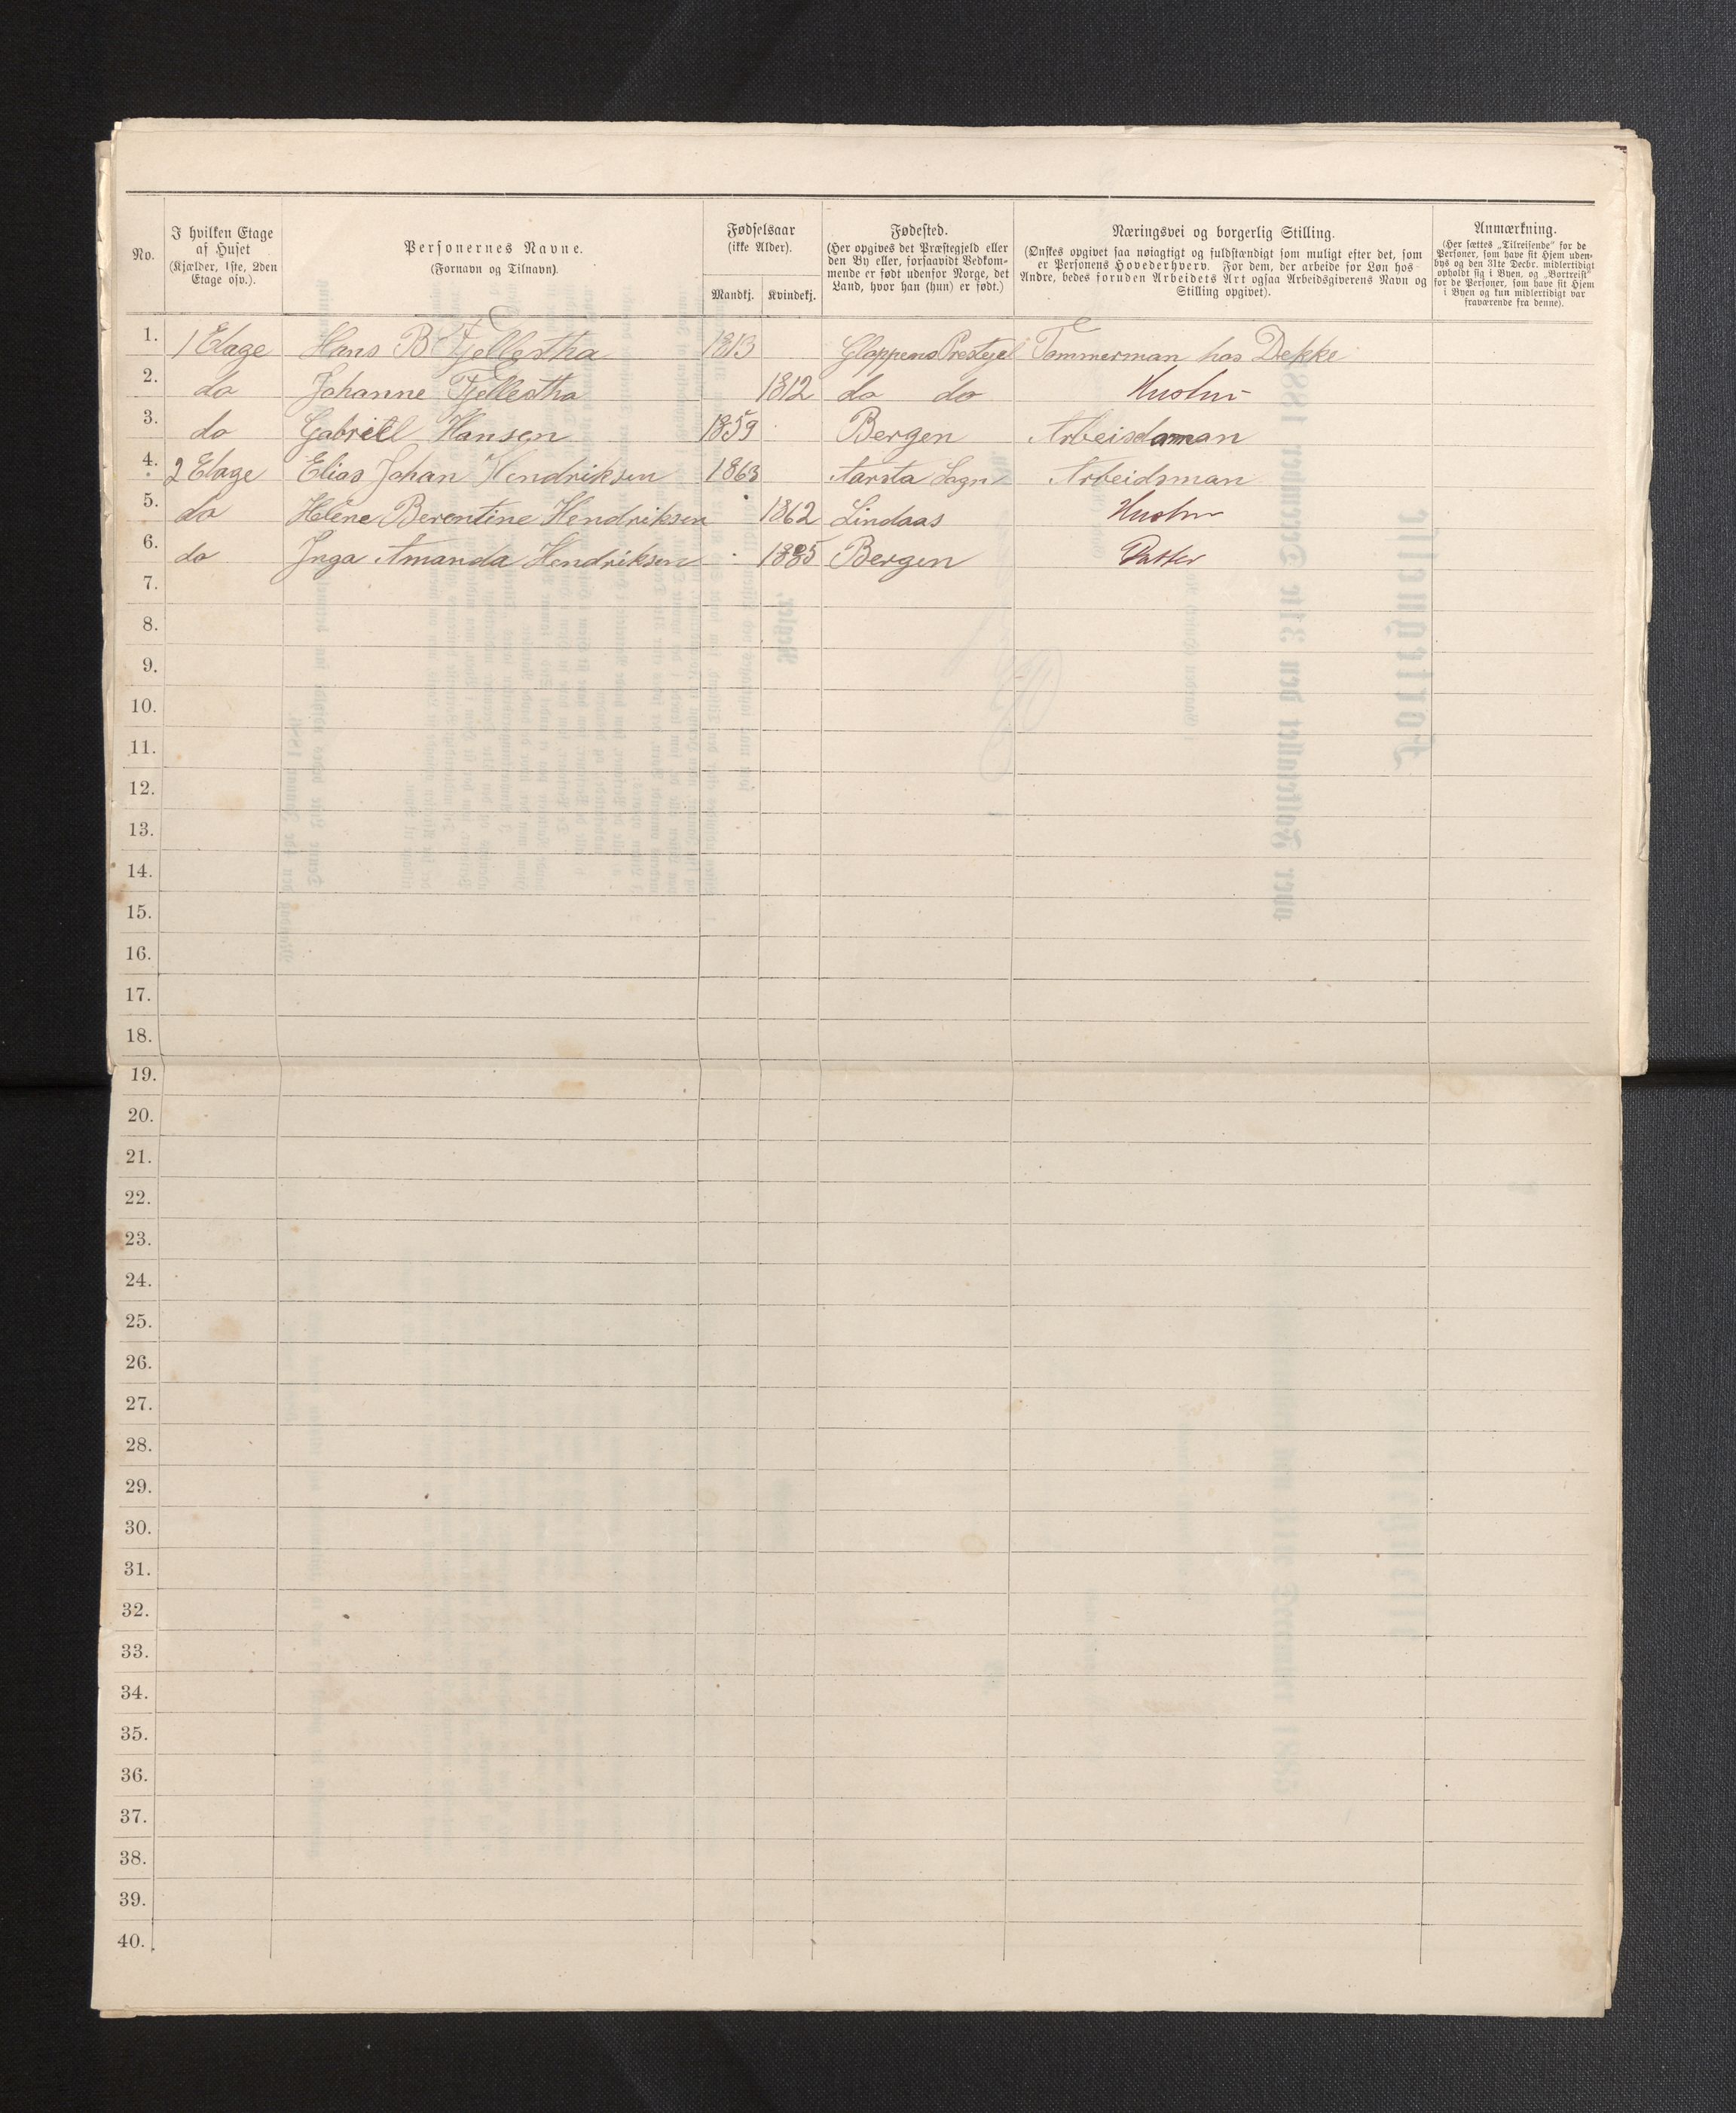 No.
I hvilken Etage
af Huset
(Kjælder, 1ste, 2den
Etage osv.).
Personernes Navne.
(Fornavn og Tilnavn).
Fødselsaar
(ikke Alder).
Mandkj. Kvindekj.
Fødested.
(Her opgives det Præstegjeld eller
den By eller, forsaavidt Vedkom-
mende er født udenfor Norge, det
Land, hvor han (hun) er født.)
Næringsvei og borgerlig Stilling.
(Ønskes opgivet saa nøiagtigt og fuldstændigt som muligt efter det, som
er Personens Hovederhverv. For dem, der arbeide for Løn hos
Andre, bedes foruden Arbeidets Art ogsaa Arbeidsgiverens Navn og
Stilling opgivet).
Anmærkning.
(Her sættes „Tilreisende" for de
Personer, som have sit Hjem uden-
bys og den 31te Decbr. midlertidigt
opholdt sig i Byen, og „Bortreist"
for de Personer, som have sit Hjem
i Byen og kun midlertidigt var
fraværende fra denne).
1. 1 Etage Hans B Fjellestha 1813 Gloppens Tømmerman hos Dekke
2. do Johanne Fjellestha 1812 do do Hustru
3. do Gabriel Hansen 1859 Bergen Arbeisdsman
4. 2 Etage Elias Johan Hendriksen 1863 Aarsta Sogn Arbeidsman
5. do Helene Berentine Hendriksen 1862 Lindaas Hustru
6. do Inga Amanda Hendriksen 1885 Bergen Datter
7.
8.
9.
10.
11.
12.
13.
14.
15.
16.
17.
18.
19.
20.
21.
22.
23.
24.
25.
26.
27.
28.
29.
30.
31.
32.
33.
34.
35.
36.
37.
38.
39.
40.